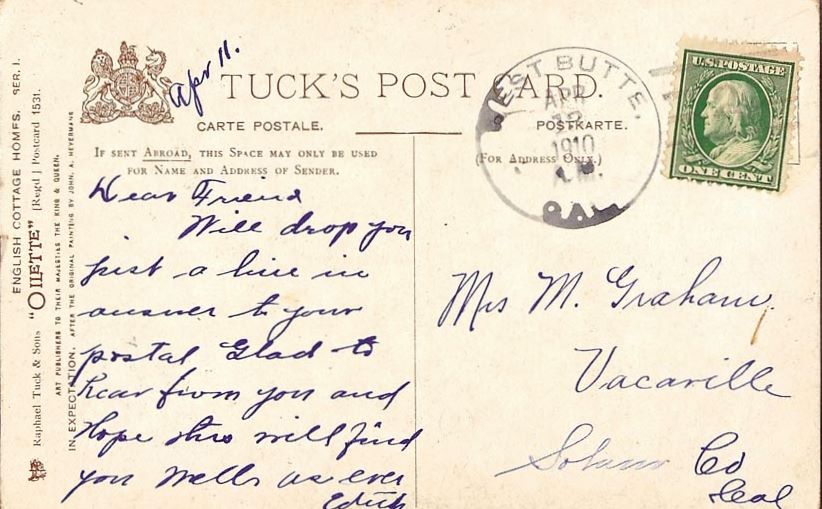 ENGLISH COTTAGE HOMES. SER. I.
Raphael Tuck & Sons "OILETTE" [Regd.] Postcard 1531.
ART PUBLISHERS TO THEIR MAJESTIES THE KING & QUEEN.
IN EXPECTATION, AFTER THE ORIGINAL PAINTING BY JOHN. A. HEYERMANS
Apr 11.
TUCK'S POST CARD.
CARTE POSTALE. POSTKARTE.
IF SENT ABROAD, THIS SPACE MAY ONLY BE USED
FOR NAME AND ADDRESS OF SENDER.
(FOR ADDRESS ONLY.)
WEST BUTTE,
APR
12
1910
A.M.
CAL.
U.S. POSTAGE
ONE CENT
Dear Friend
Will drop you
just a line in
answer to your
postal Glad to
hear from you and
Hope this will find
you Wells as ever
Edith
Mrs M. Graham.
Vacaville
Solano Co
Cal